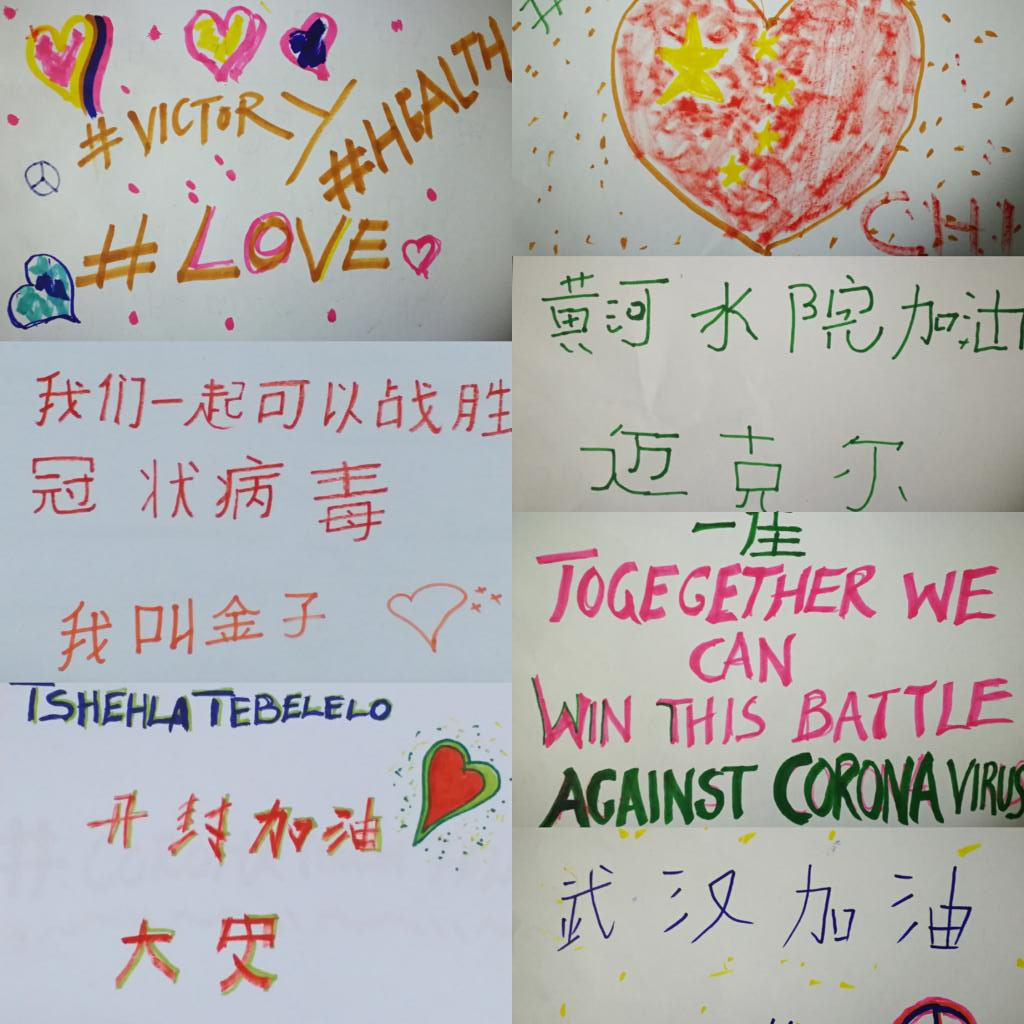 #VICTORY
#HEALTH
#LOVE
我们一起可以战胜
冠状病毒
我叫金子
TSHEHLA TEBELELO
开封加油
大史
CHI
黄河水院加油
迈克尔
TOGEGETHER WE
CAN
WIN THIS BATTLE
AGAINST CORONA VIRUS
武汉加油